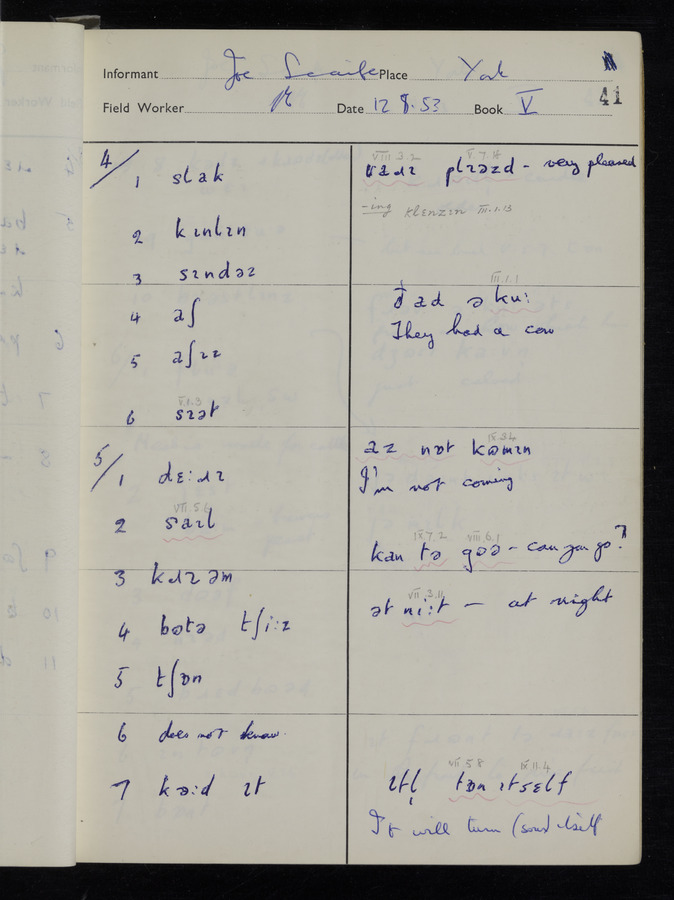 Informant Joe Place York
Field Worker Date 12 8. 53 Book V 41
4/ 1 slak
2 kɪnlɪn
3 sɪndəz
4 aʃ
5 aʃɪz
V.1.3
6 sɪət
5/ 1 dɛ:ɹɪ
VII.5.6
2 saɪl
3 kɹɪəm
4 bɒtə tʃi:z
5 tʃɒn
6 does not know.
7 kə:d ɪt
VIII.3.2 V.7.19
vaɹɪ plɪəzd - very pleased
-ing klenzɪn III.1.13
III.1.1
ðad ə ku:
They had a cow
IX.3.4
az nɒt kʊmɪn
I'm not coming
IX.7.2 VIII.6.1
kan tə gɒə - can you go?
VII.3.11
ət ni:t - at night
VII.5.8 IX.11.4
ɪtl̩ tɒn ɪtsɛlf
It will turn (sour) itself